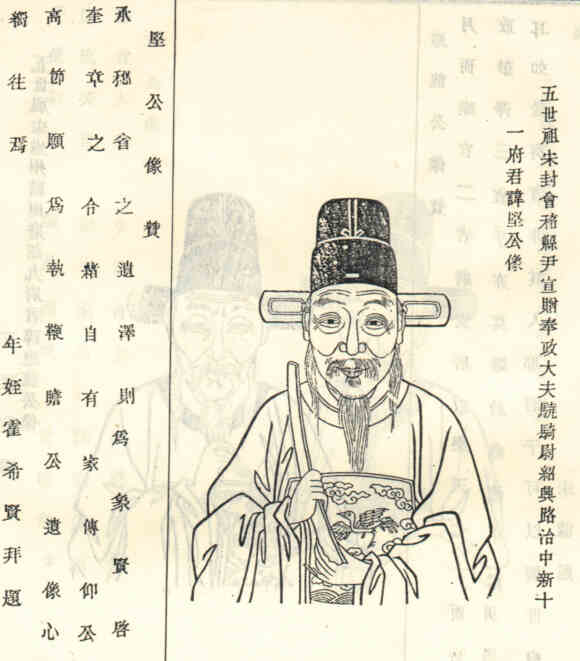 五世祖朱封會稽縣尹宣贈奉政大夫驍騎尉紹興路治中新十
一府君諱堅公像
堅公像贊
承秘省之遺澤則爲象賢啓
奎章之令緒自有家傳仰公
高節願爲執鞭瞻公遺像心
獨往焉
年姪霍希賢拜題